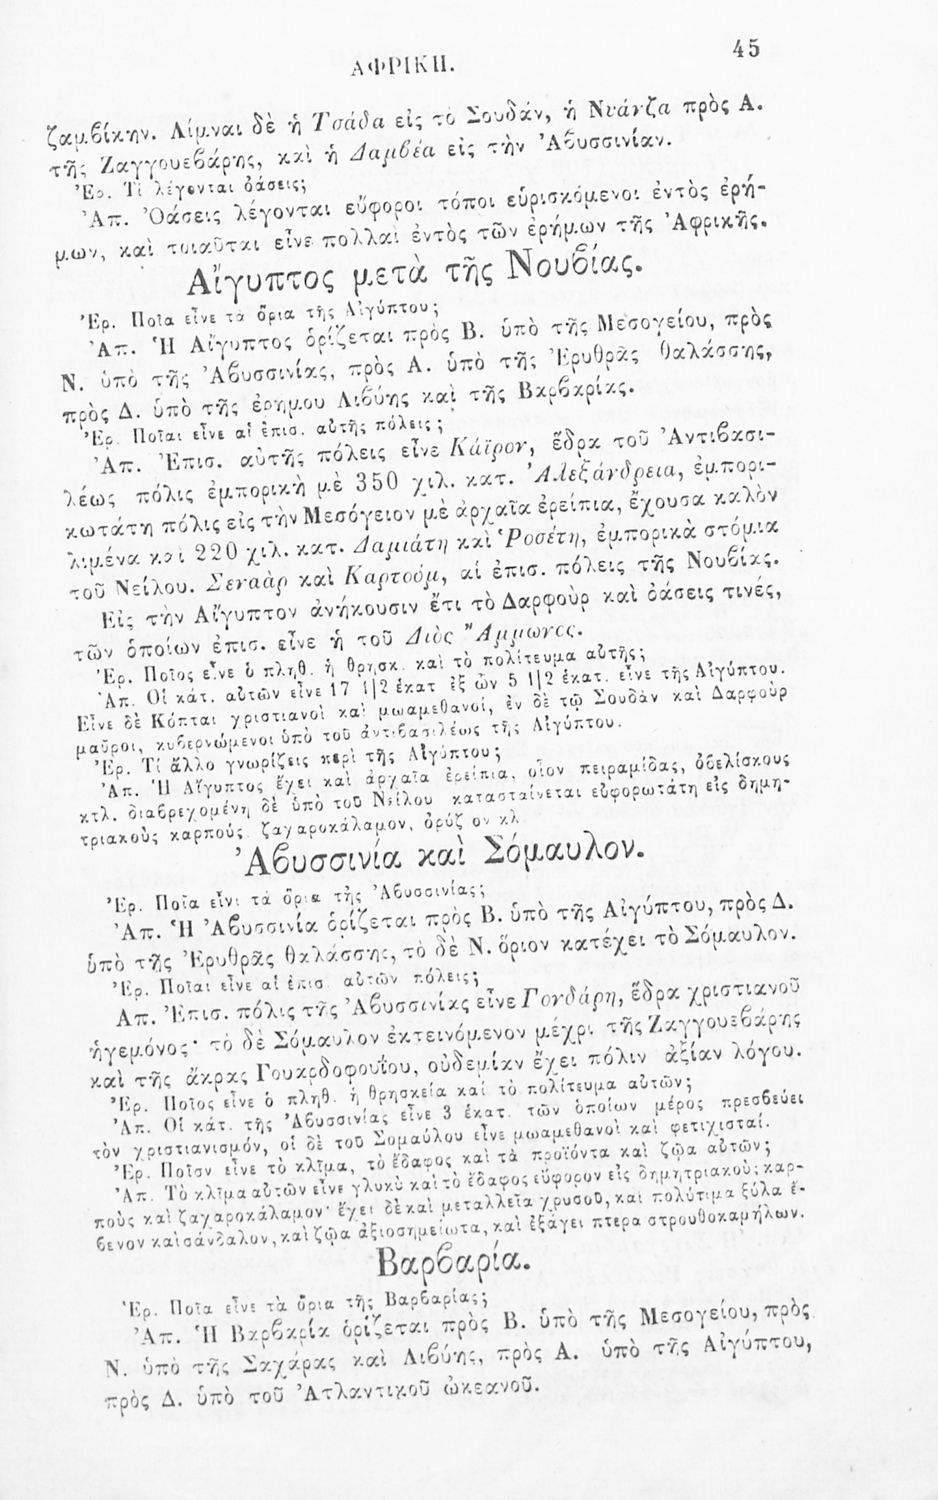 ΑΦΡΙΚΗ. 45
ζαμβίκην. Λίμναι δὲ ἡ Τσάδα εἰς τὸ Σουδάν, ἡ Νυάνζα πρὸς Α.
τῆς Ζαγγουεβάρης, καὶ ἡ Δαμβέα εἰς τὴν Ἀβυσσινίαν.
Ἐρ. Τί λέγονται ὀάσεις;
Ἀπ. Ὀάσεις λέγονται εὔφοροι τόποι εὑρισκόμενοι ἐντὸς ἐρή-
μων, καὶ τοιαῦται εἶνε πολλαὶ ἐντὸς τῶν ἐρήμων τῆς Ἀφρικῆς.
Αἴγυπτος μετὰ τῆς Νουβίας.
Ἐρ. Ποῖα εἶνε τὰ ὅρια τῆς Αἰγύπτου;
Ἀπ. Ἡ Αἴγυπτος ὁρίζεται πρὸς Β. ὑπὸ τῆς Μεσογείου, πρὸς
Ν. ὑπὸ τῆς Ἀβυσσινίας, πρὸς Α. ὑπὸ τῆς Ἐρυθρᾶς θαλάσσης,
πρὸς Δ. ὑπὸ τῆς ἐρήμου Λιβύης καὶ τῆς Βαρβαρίας.
Ἐρ. Ποῖαι εἶνε αἱ ἐπισ. αὐτῆς πόλεις;
Ἀπ. Ἐπισ. αὐτῆς πόλεις εἶνε Κάϊρον, ἕδρα τοῦ Ἀντιβασι-
λέως πόλις ἐμπορικὴ μὲ 350 χιλ. κατ. Ἀλεξάνδρεια, ἐμπορι-
κωτάτη πόλις εἰς τὴν Μεσόγειον μὲ ἀρχαῖα ἐρείπια, ἔχουσα καλὸν
λιμένα καὶ 220 χιλ. κατ. Δαμιάτη καὶ Ῥοσέτη, ἐμπορικὰ στόμια
τοῦ Νείλου. Σεναὰρ καὶ Καρτούμ, αἱ ἐπισ. πόλεις τῆς Νουβίας.
Εἰς τὴν Αἴγυπτον ἀνήκουσιν ἔτι τὸ Δαρφοὺρ καὶ ὀάσεις τινές,
τῶν ὁποίων ἐπισ. εἶνε ἡ τοῦ Διὸς Ἄμμωνος.
Ἐρ. Ποῖος εἶνε ὁ πληθ. ἡ θρησκ. καὶ τὸ πολίτευμα αὐτῆς;
Ἀπ. Οἱ κάτ. αὐτῶν εἶνε 17 1|2 ἑκατ ἐξ ὧν 5 1|2 ἑκατ. εἶνε τῆς Αἰγύπτου.
Εἶνε δὲ Κόπται χριστιανοὶ καὶ μωαμεθανοί, ἐν δὲ τῷ Σουδὰν καὶ Δαρφοὺρ
μαῦροι, κυβερνώμενοι ὑπὸ τοῦ ἀντιβασιλέως τῆς Αἰγύπτου.
Ἐρ. Τί ἄλλο γνωρίζεις περὶ τῆς Αἰγύπτου;
Ἀπ. Ἡ Αἴγυπτος ἔχει καὶ ἀρχαῖα ἐρείπια, οἷον πειραμίδας, ὀβελίσκους
κτλ. διαβρεχομένη δὲ ὑπὸ τοῦ Νείλου κατασταίνεται εὐφορωτάτη εἰς δημη-
τριακοὺς καρπούς ζαχαροκάλαμον, ὀρύζον κλ
Ἀβυσσινία καὶ Σόμαυλον.
Ἐρ. Ποῖα εἶνε τὰ ὅρια τῆς Ἀβυσσινίας;
Ἀπ. Ἡ Ἀβυσσινία ὁρίζεται πρὸς Β. ὑπὸ τῆς Αἰγύπτου, πρὸς Δ.
ὑπὸ τῆς Ἐρυθρᾶς θαλάσσης, τὸ δὲ Ν. ὅριον κατέχει τὸ Σόμαυλον.
Ἐρ. Ποῖαι εἶνε αἱ ἐπισ. αὐτῶν πόλεις;
Ἀπ. Ἐπισ. πόλις τῆς Ἀβυσσινίας εἶνε Γονδάρη, ἕδρα χριστιανοῦ
ἡγεμόνος· τὸ δὲ Σόμαυλον ἐκτεινόμενον μέχρι τῆς Ζαγγουεβάρης
καὶ τῆς ἄκρας Γουαρδοφουΐου, οὐδεμίαν ἔχει πόλιν ἀξίαν λόγου.
Ἐρ. Ποῖος εἶνε ὁ πληθ. ἡ θρησκεία καὶ τὸ πολίτευμα αὐτῶν;
Ἀπ. Οἱ κάτ. τῆς Ἀβυσσινίας εἶνε 3 ἑκατ. τῶν ὁποίων μέρος πρεσβεύει
τὸν χριστιανισμόν, οἱ δὲ τοῦ Σομαύλου εἶνε μωαμεθανοὶ καὶ φετιχισταί.
Ἐρ. Ποῖον εἶνε τὸ κλῖμα, τὸ ἔδαφος καὶ τὰ προϊόντα καὶ ζῷα αὐτῶν;
Ἀπ. Τὸ κλῖμα αὐτῶν εἶνε γλυκὺ καὶ τὸ ἔδαφος εὔφορον εἰς δημητριακοὺς καρ-
ποὺς καὶ ζαχαροκάλαμον· ἔχει δὲ καὶ μεταλλεῖα χρυσοῦ, καὶ πολύτιμα ξύλα ἔ-
βενον καὶ σάνδαλον, καὶ ζῷα ἀξιοσημείωτα, καὶ ἐξάγει πτερα στρουθοκαμήλων.
Βαρβαρία.
Ἐρ. Ποῖα εἶνε τὰ ὅρια τῆς Βαρβαρίας;
Ἀπ. Ἡ Βαρβαρία ὁρίζεται πρὸς Β. ὑπὸ τῆς Μεσογείου, πρὸς
Ν. ὑπὸ τῆς Σαχάρας καὶ Λιβύης, πρὸς Α. ὑπὸ τῆς Αἰγύπτου,
πρὸς Δ. ὑπὸ τοῦ Ἀτλαντικοῦ ὠκεανοῦ.